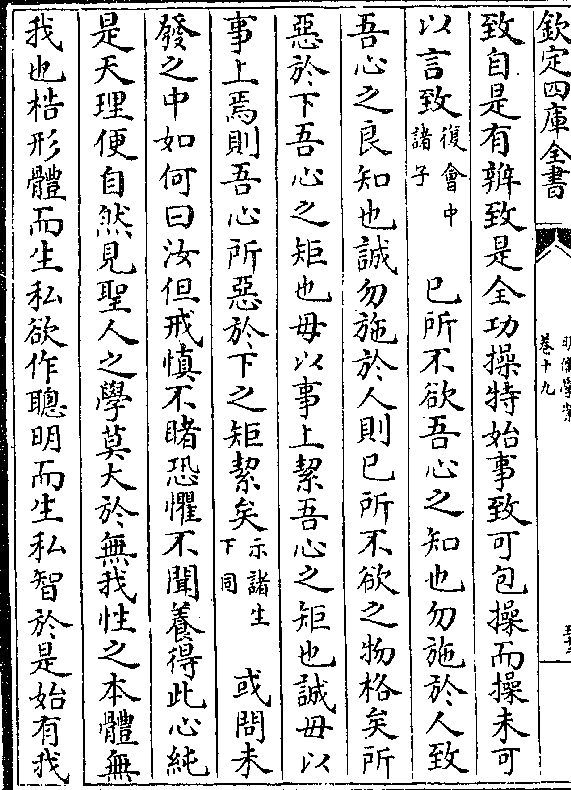 欽定四庫全書
明儒學案
卷十九
致自是有辨致是全功操特始事致可包操而操未可
以言致復會中諸子　　已所不欲吾心之知也勿施於人致
吾心之良知也誠勿施於人則已所不欲之物格矣所
惡於下吾心之矩也毋以事上絜吾心之矩也誠毋以
事上焉則吾心所惡於下之矩絜矣示諸生下同　　或問未
發之中如何曰汝但戒慎不睹恐懼不聞養得此心純
是天理便自然見聖人之學莫大於無我性之本體無
我也梏形體而生私欲作聰明而生私智於是始有我